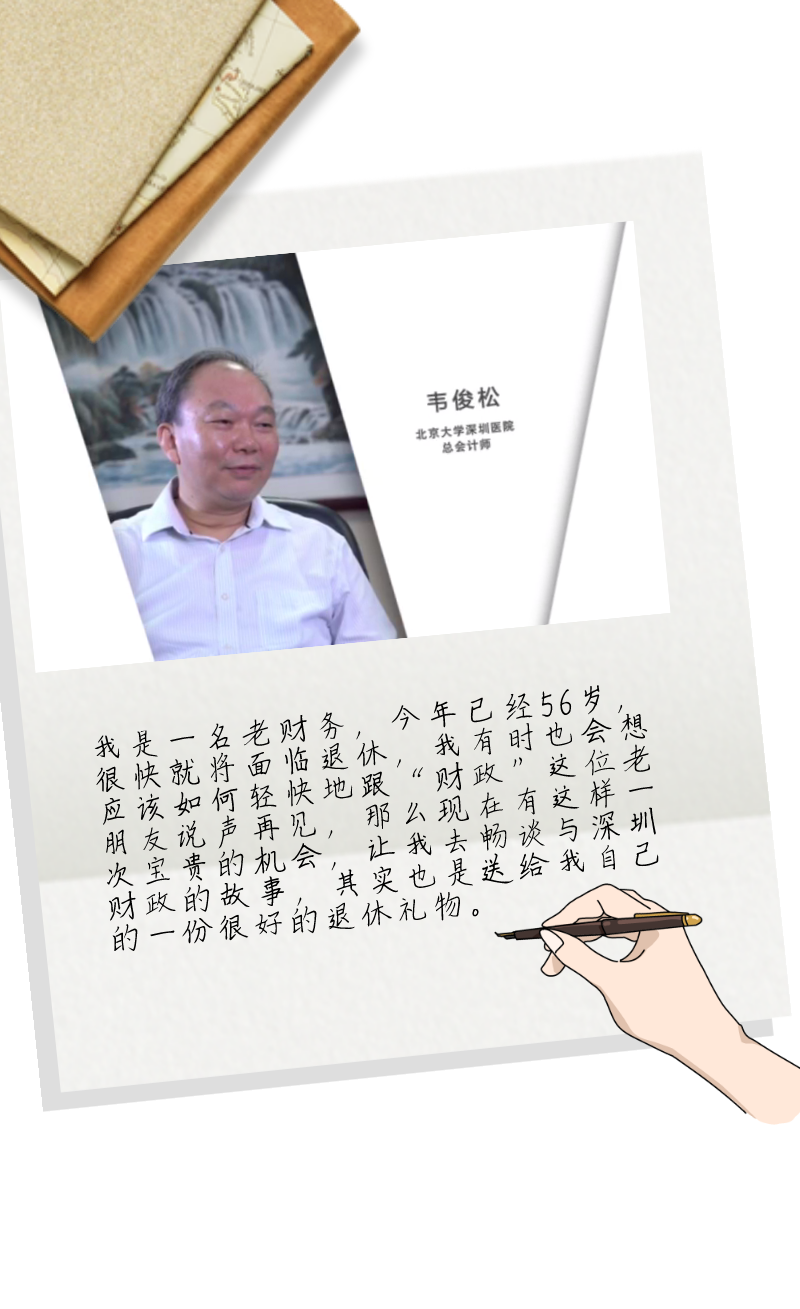 韦俊松
北京大学深圳医院
总会计师
我是一名老财务，今年已经56岁，
很快就将面临退休，我有时也会想
应该如何轻快地跟“财政”这位老
朋友说声再见，那么现在有这样一
次宝贵的机会，让我去畅谈与深圳
财政的故事，其实也是送给我自己
的一份很好的退休礼物。